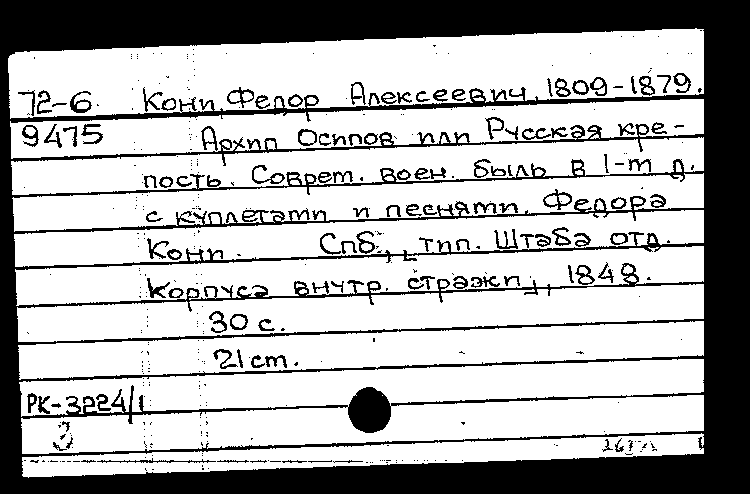 72-6 Кони, Федор Алексеевич, 1809-1879.
9475 Архип Осипов или Русская кре-
пость. Соврем. воен. быль в 1-м д.
с куплетами и песнями. Федора
Кони. Спб., тип. Штаба отд.
Корпуса внутр. стражи, 1848.
30 с.
21 cm.
РК-3224/1
3